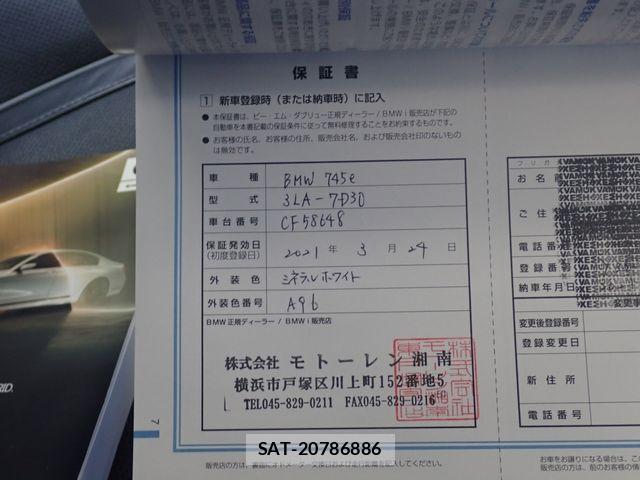 保証書
1 新車登録時（または納車時）に記入
● 本保証書は、ビー・エム・ダブリュー正規ディーラー / BMW i 販売店が下記の
自動車を本書記載の保証条件に従って無料修理することをお約束するものです。
● お客様の氏名、お客様の住所、販売会社名、および販売会社印のないもの
は無効です。
車種 BMW 745e
型式 3LA-7D30
車台番号 CF58648
保証発効日
(初度登録日) 2021 年 3 月 24 日
外装色 ミネラルホワイト
外装色番号 A96
BMW 正規ディーラー / BMW i 販売店
株式会社 モトーレン 湘南
横浜市戸塚区川上町152番地5
TEL045-829-0211 FAX045-829-0216
7
フリガナ
お名前
ご住
電話番号
登録番号
納車年月日
変更事
変更後登録番号
登録変更日
新住所
電話番号
お車をお譲りになる場合は、この
販売店の方は、前のお客様の情
RID.
SAT-20786886